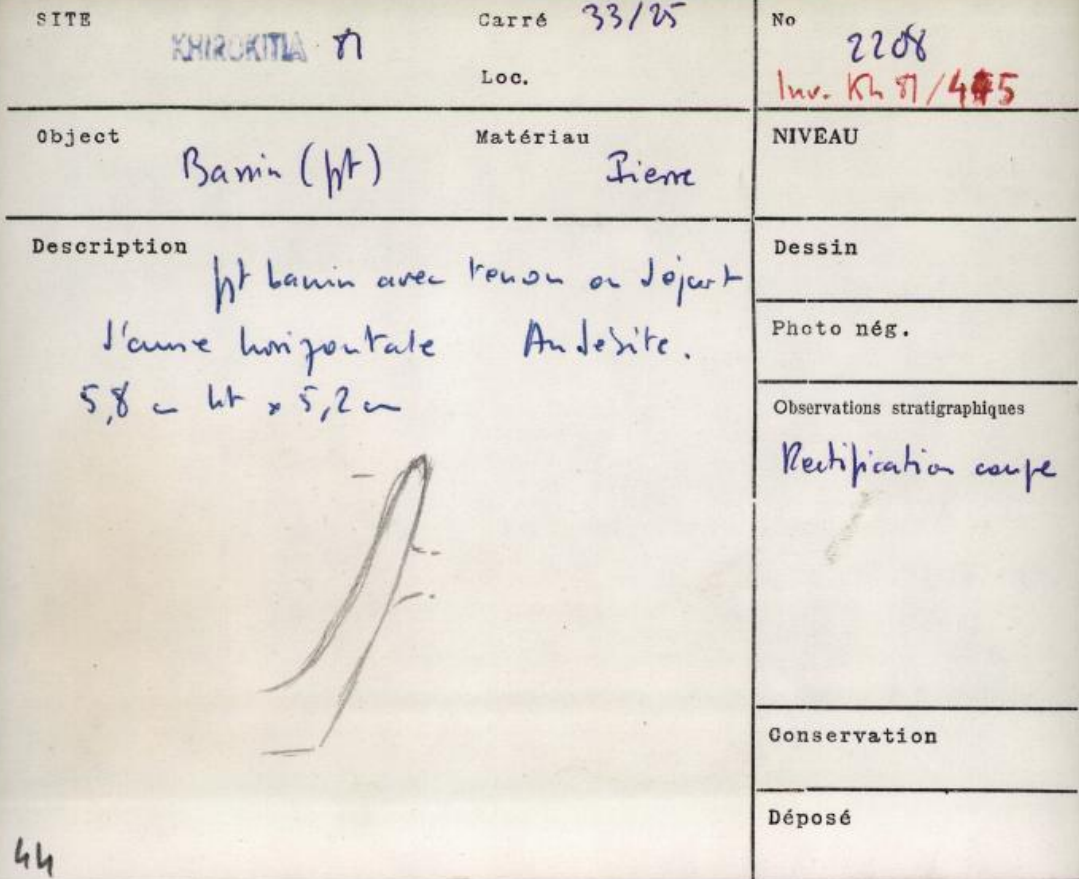 SITE
KHIROKITIA 81
Carré 33/25
Loc.
No
2208
Inv. Kh 81/
Object
Bassin (fgt)
Matériau
Pierre
NIVEAU
Description
fgt bassin avec tenon ou départ
d'anse horizontale Andésite.
5,8 cm ht x 5,2 cm
Dessin
Photo nég.
Observations stratigraphiques
Rectification coupe
Conservation
Déposé
44